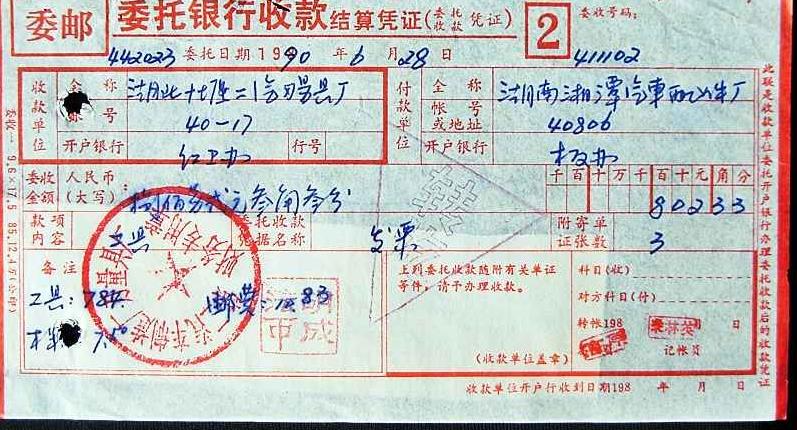 委邮
委托银行收款结算凭证(委托收款凭证)
2
委收号码:
442023 委托日期 1990 年 6 月 28 日 411102
收款单位
全称 湖北十堰二汽刃具厂
账号 40-17
开户银行 红卫办 行号
付款单位
全称 湖南湘潭汽車配件厂
帐号或地址 40806
开户银行 板办
委收金额: 人民币(大写) 捌佰另贰元叁角叁分
千百十万千百十元角分
80233
款项内容 工具
委托收款凭据名称 发票
附寄单证张数 3
备注
工具: 784.
邮费: 10.83
7.50
上列委托收款随附有关单证等件,请予办理收款。
(收款单位盖章)
科目(收)
对方科目(付)
转帐198 月 日
记帐员
收款单位开户行收到日期198 年 月 日
此联是收款单位委托开户银行办理委托收款后的收款凭证
委收一 9.6×17.5 85.12.4
财务专用